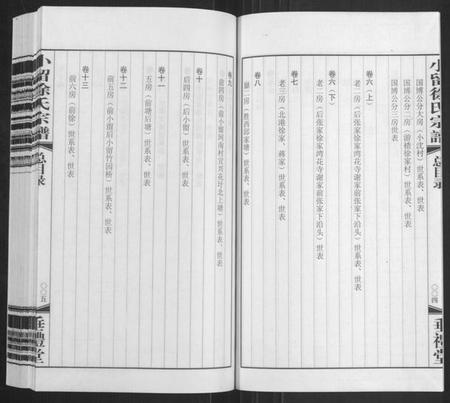 小留徐氏宗譜
总目录
〇〇四
垂禮堂
国博公分大房（小沈村）世系表、世表
国博公分二房（前楼徐家村）世系表、世表
国博公分三房世表
卷六（上）
老二房（后张家徐家湾花寺谢家前张家下泊头）世系表、世表
卷六（下）
老二房（后张家徐家湾花寺谢家前张家下泊头）世表
卷七
老三房（北港徐家、蒋家）世系表、世表
卷八
二房（胜西邱家塘）世系表、世表
卷九
前四房（前小留河南村宜兴花圩北上塘）世系表、世表
卷十
后四房（后小留）世系表、世表
卷十一
五房（前塘后塘）世系表、世表
卷十二
前五房（前小留后小留竹园枌）世系表、世表
卷十三
前六房（前徐）世系表、世表
小留徐氏宗譜
总目录
〇〇五
垂禮堂